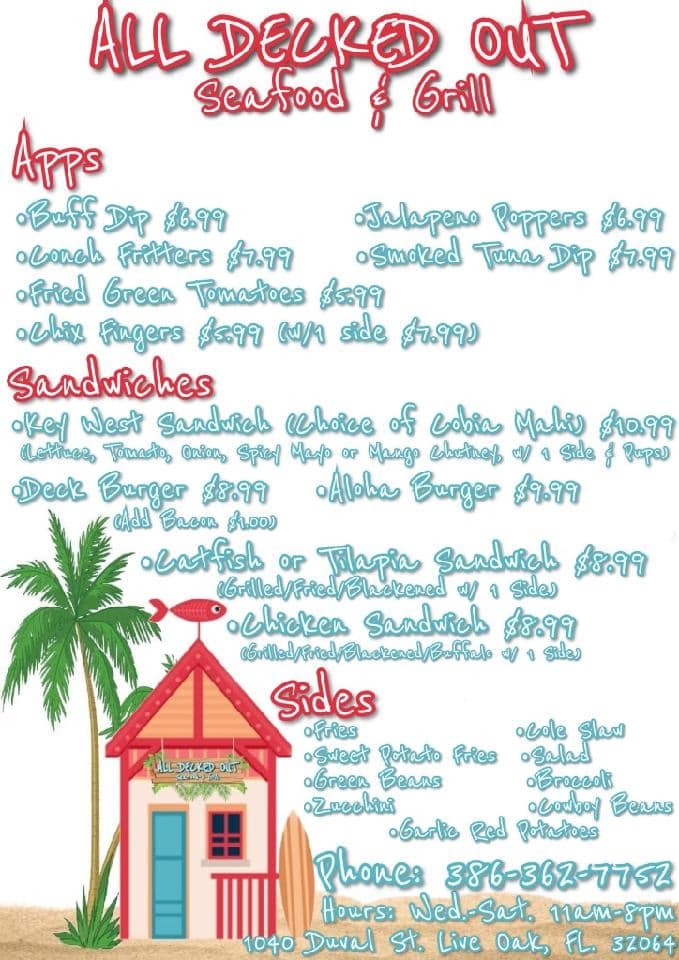 ALL DECKED OUT
Seafood & Grill
Apps
•Buff Dip $6.99
•Jalapeno Poppers $6.99
•Conch Fritters $7.99
•Smoked Tuna Dip $7.99
•Fried Green Tomatoes $5.99
•Chix Fingers $5.99 (w/1 side $7.99)
Sandwiches
•Key West Sandwich (Choice of Cobia Mahi) $10.99
(Lettuce, Tomato, Onion, Spicy Mayo or Mango Chutney, w/ 1 Side & Pups)
•Deck Burger $8.99
•Aloha Burger $9.99
(Add Bacon $1.00)
•Catfish or Tilapia Sandwich $8.99
(Grilled/Fried/Blackened w/ 1 Side)
•Chicken Sandwich $8.99
(Grilled/Fried/Blackened/Buffalo w/ 1 Side)
Sides
•Fries
•Cole Slaw
•Sweet Potato Fries
•Salad
•Green Beans
•Broccoli
•Zucchini
•Cowboy Beans
•Garlic Red Potatoes
ALL DECKED OUT
Phone: 386-362-7752
Hours: Wed.-Sat. 11am-8pm
1040 Duval St. Live Oak, FL. 32064